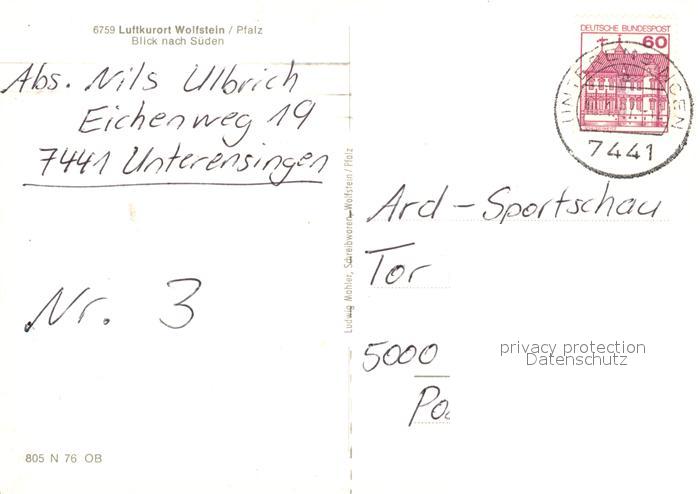 6759 Luftkurort Wolfstein / Pfalz
Blick nach Süden
Abs. Nils Ulbrich
Eichenweg 19
7441 Unterensingen
Nr. 3
805 N 76 OB
Ludwig Mohler, Schreibwaren, Wolfstein / Pfalz
DEUTSCHE BUNDESPOST
60
UNTERENSINGEN
7441
Ard - Sportschau
Tor
5000
privacy protection
Datenschutz